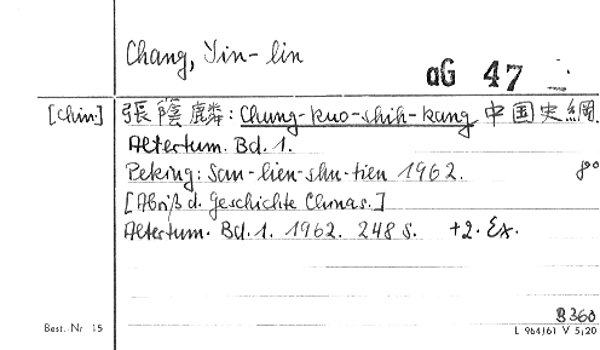 Chang, Yin-lin
aG 47
[Chin.] 張蔭麟: Chung-kuo-shih-kang 中国史綱.
Altertum. Bd. 1.
Peking: San-lien-shu-tien 1962. 8°
[Abriß d. Geschichte Chinas.]
Altertum. Bd. 1. 1962. 248 S. +2. Ex.
8360
Best. Nr 15 L 964/61 V 5,20